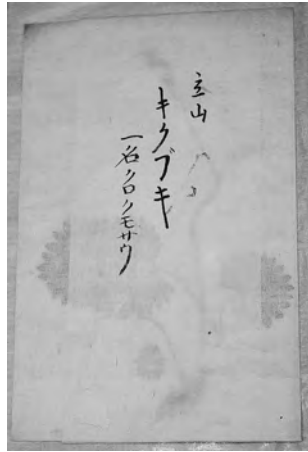 立山
キクブキ
一名クロクモサウ